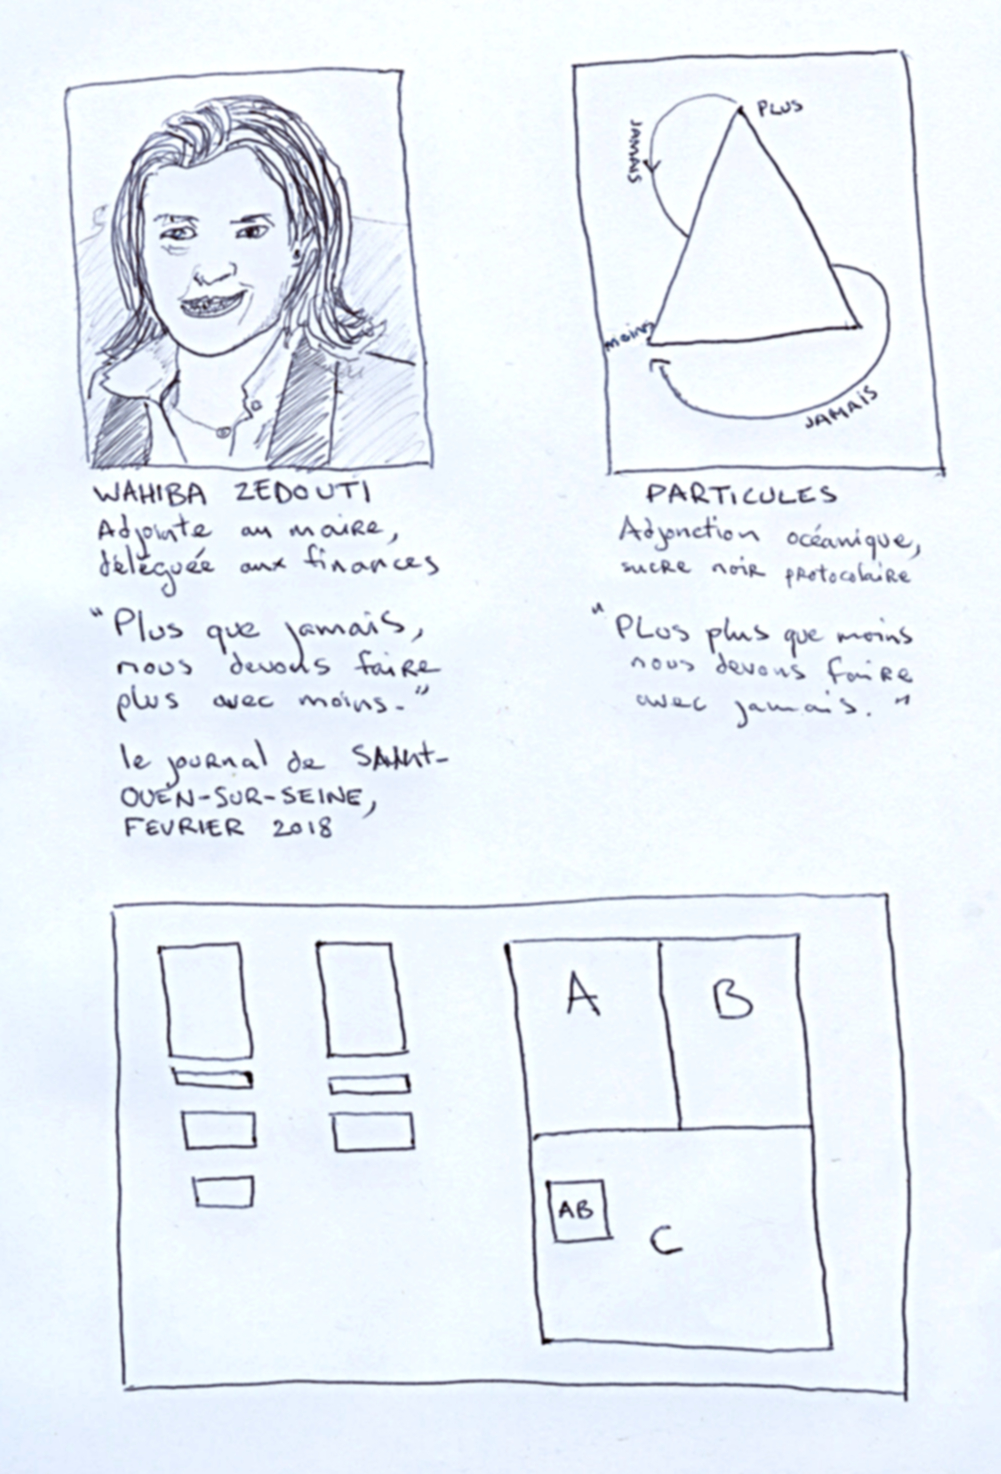 WAHIBA ZEDOUTI
Adjointe au maire,
déléguée aux finances
"Plus que jamais,
nous devons faire
plus avec moins."
le journal de SAINT-
OUEN-SUR-SEINE,
FEVRIER 2018
PLUS
JAMAIS
moins
JAMAIS
PARTICULES
Adjonction océanique,
sucre noir protocolaire
"PLus plus que moins
nous devons faire
avec jamais."
A
B
AB
C